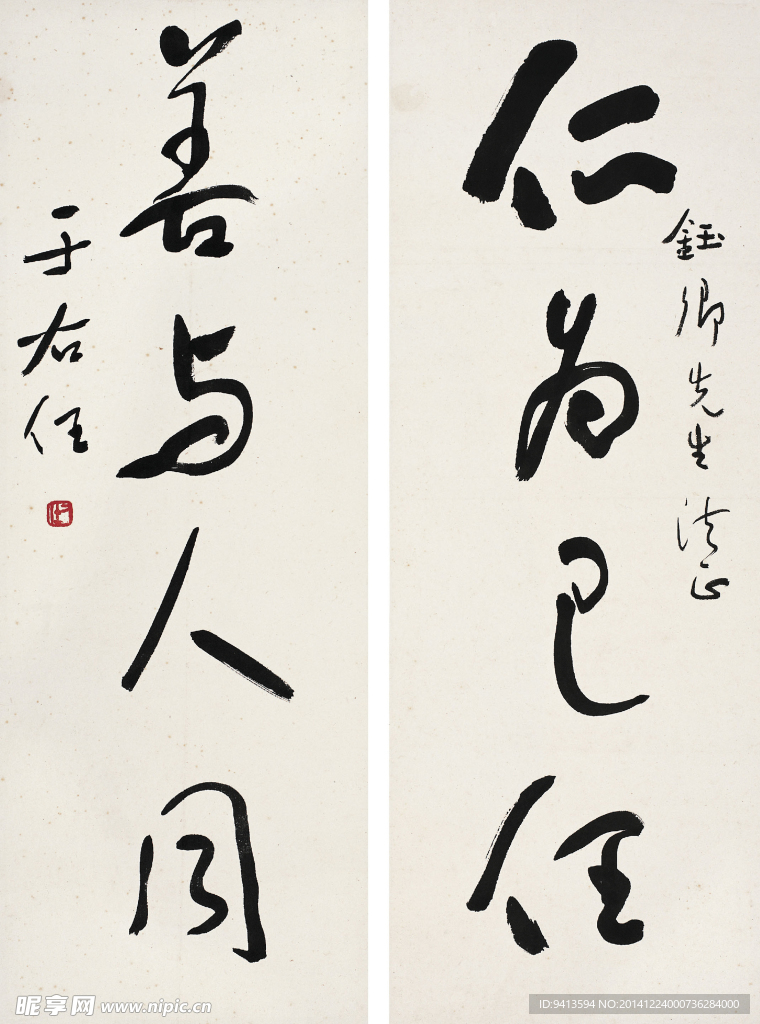 钰卿先生法正
仁为己任
善与人同
于右任
昵享网 www.nipic.cn
ID:9413594 NO:20141224000736284000